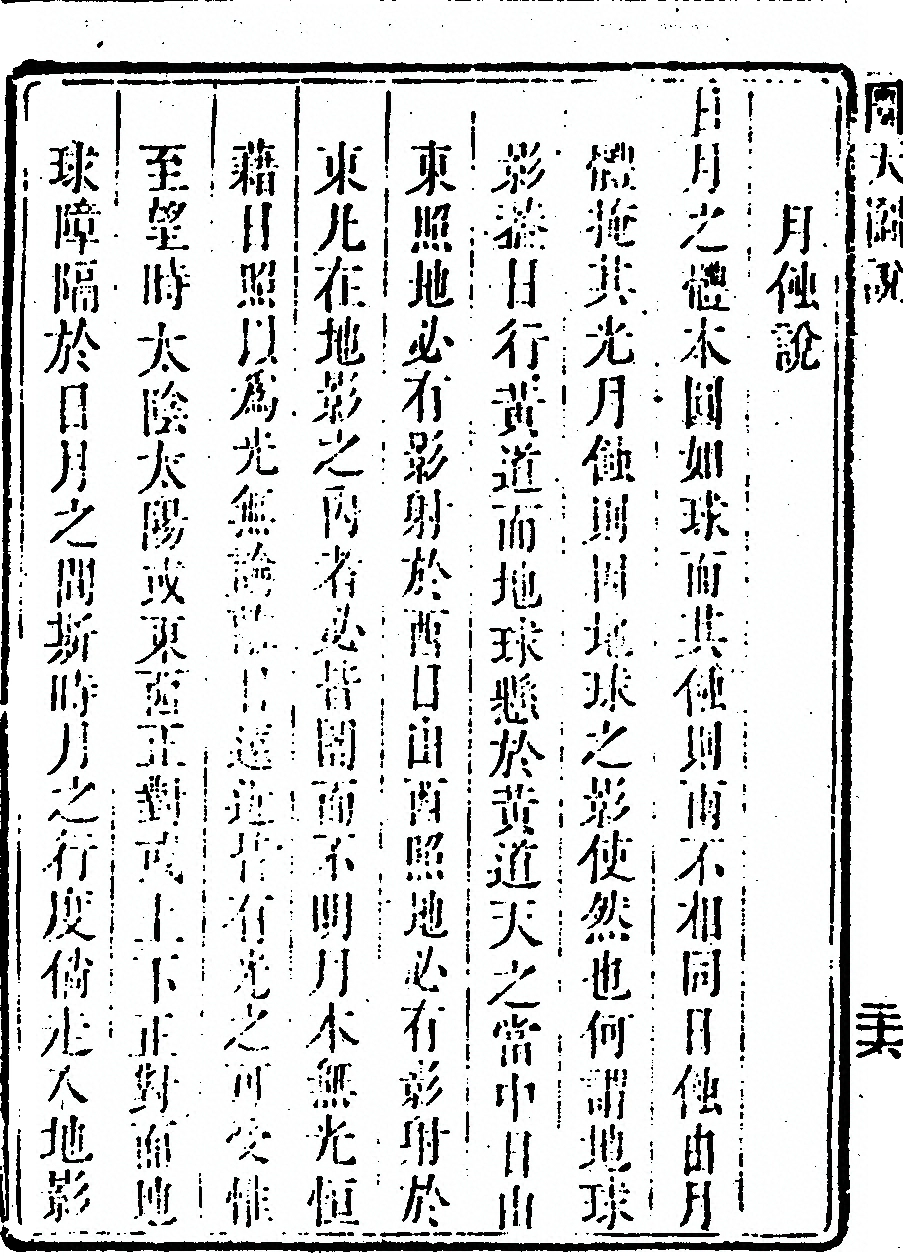 圜天圖說
月蝕說
日月之體本圓如球而其蝕則兩不相同日蝕由月
體掩其光月蝕則因地球之影使然也何謂地球
影蓋日行黃道而地球懸於黃道天之當中日由
東照地必有影射於西日由西照地必有影射於
東凡在地影之內者必皆闇而不明月本無光恒
藉日照以為光無論離日遠近皆有光之可受惟
至望時太陰太陽或東西正對或上下正對而地
球障隔於日月之間斯時月之行度倘走入地影
三十六